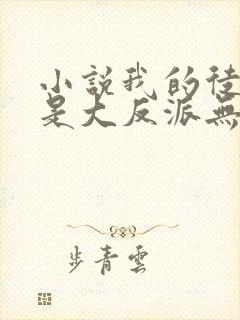 小說我的徒
是大反派無
步青雲